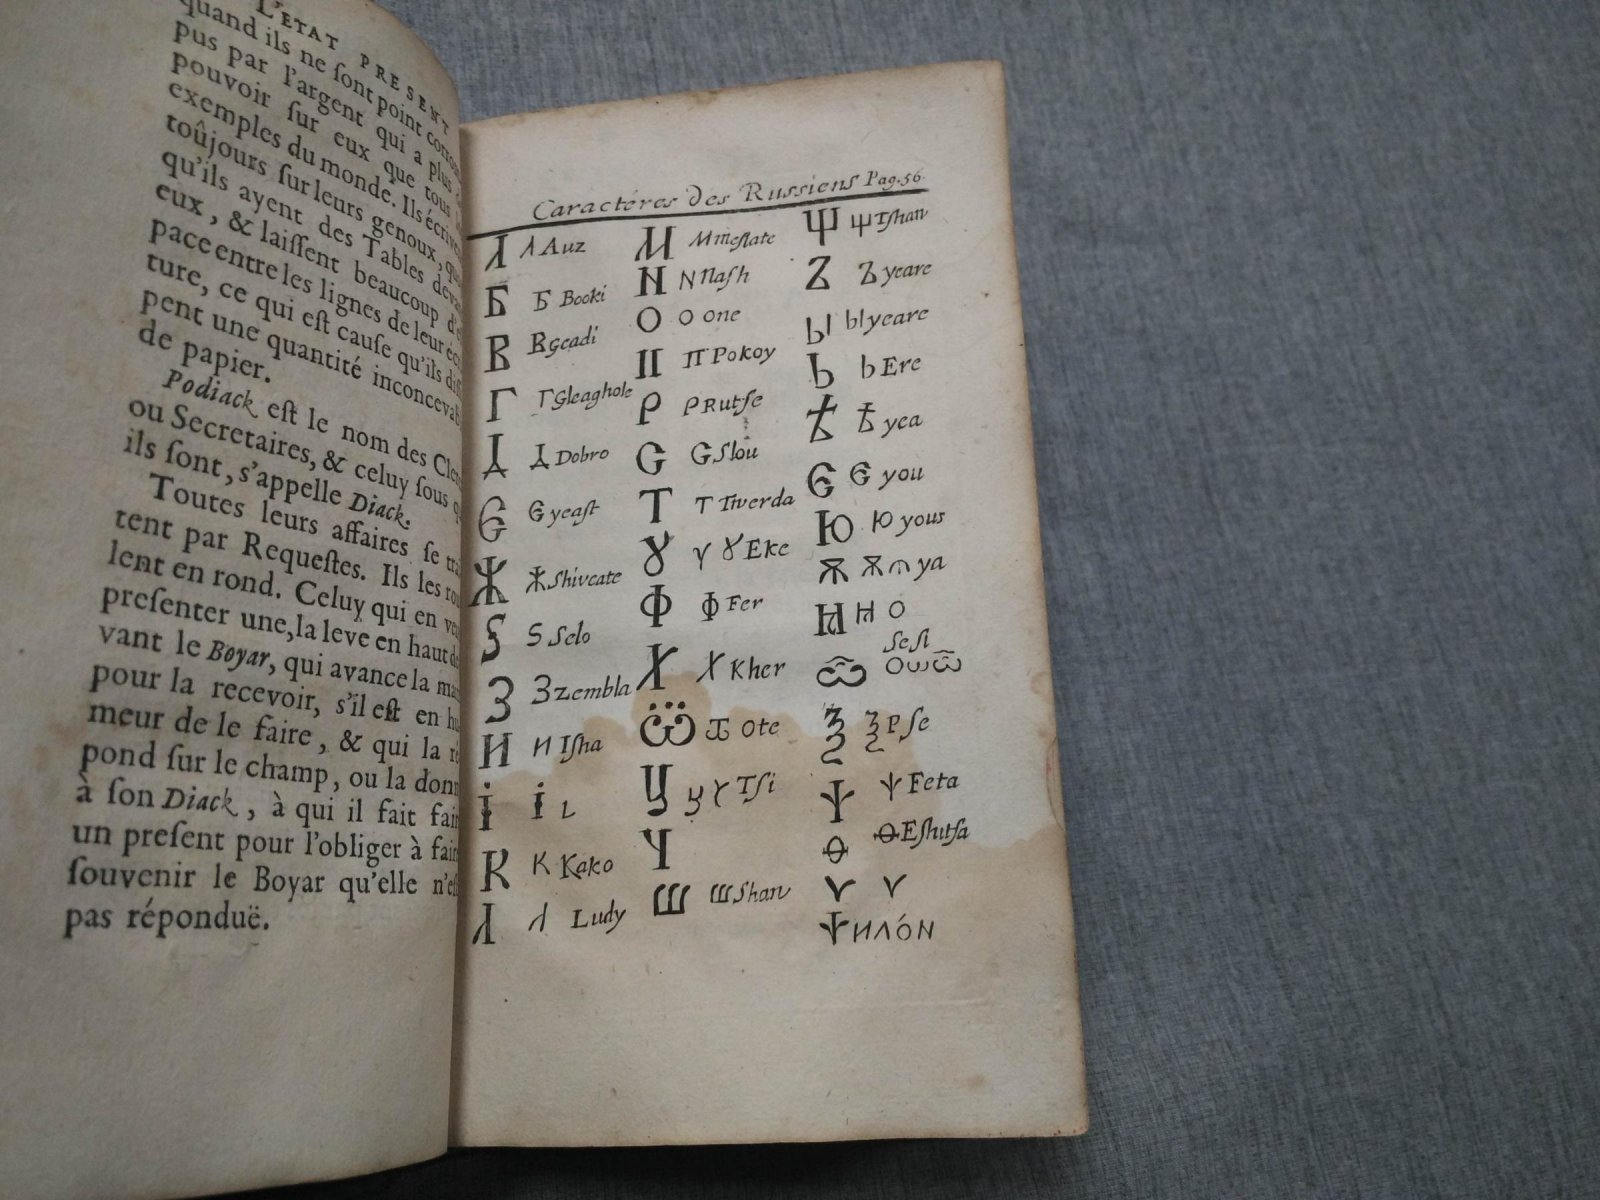 L'ETAT PRESENT
quand ils ne ſont point
pus par l'argent qui a plus
pouvoir ſur eux que tous
exemples du monde. Ils
toûjours ſur leurs genoux,
qu'ils ayent des Tables
eux, & laiſſent beaucoup
pace entre les lignes de leur
ture, ce qui eſt cauſe qu'ils
pent une quantité
de papier.
Podiack eſt le nom des
ou Secretaires, & celuy ſous
ils ſont, s'appelle Diack.
Toutes leurs affaires ſe
tent par Requeſtes. Ils les
lent en rond. Celuy qui en
preſenter une, la leve en haut
vant le Boyar, qui avance la
pour la recevoir, s'il eſt en
meur de le faire, & qui la
pond ſur le champ, ou la
à ſon Diack, à qui il fait
un preſent pour l'obliger à
ſouvenir le Boyar qu'elle
pas réponduë.
Caractéres des Russiens Pag. 56
Λ Λ Auz
Б Б Booki
В В Geadi
Г Г Gleaghole
Д Д Dobro
Є Є yeaſt
Ж Ж Shiveate
Ѕ Ѕ Selo
З З zembla
И И Iſha
і і L
К К Kako
Λ Λ Ludy
М М meſlate
N N naſh
О О one
П П Pokoy
Р Р Rutſe
Є Є Slou
Т Т Twerda
Ɣ γ Ɣ Eke
Ф Ф Fer
Х Х Kher
Ѿ Ѿ Ote
Ц Ц γ Tſi
Ч
Ш Ш Shan
Ψ Ψ Tſhan
Ъ Ъ yeare
Ы Ы yeare
Ь Ь Ere
Ѣ Ѣ yea
Є Є you
Ю Ю yous
Ѫ Ѫ ya
Н Н О
Seſi
Ѽ О ω Ѽ
Ѯ Ѯ Pſe
Ѱ Ѱ Feta
Ѳ Ѳ Eſhitſa
Ѵ Ѵ
ѰИΛÓN